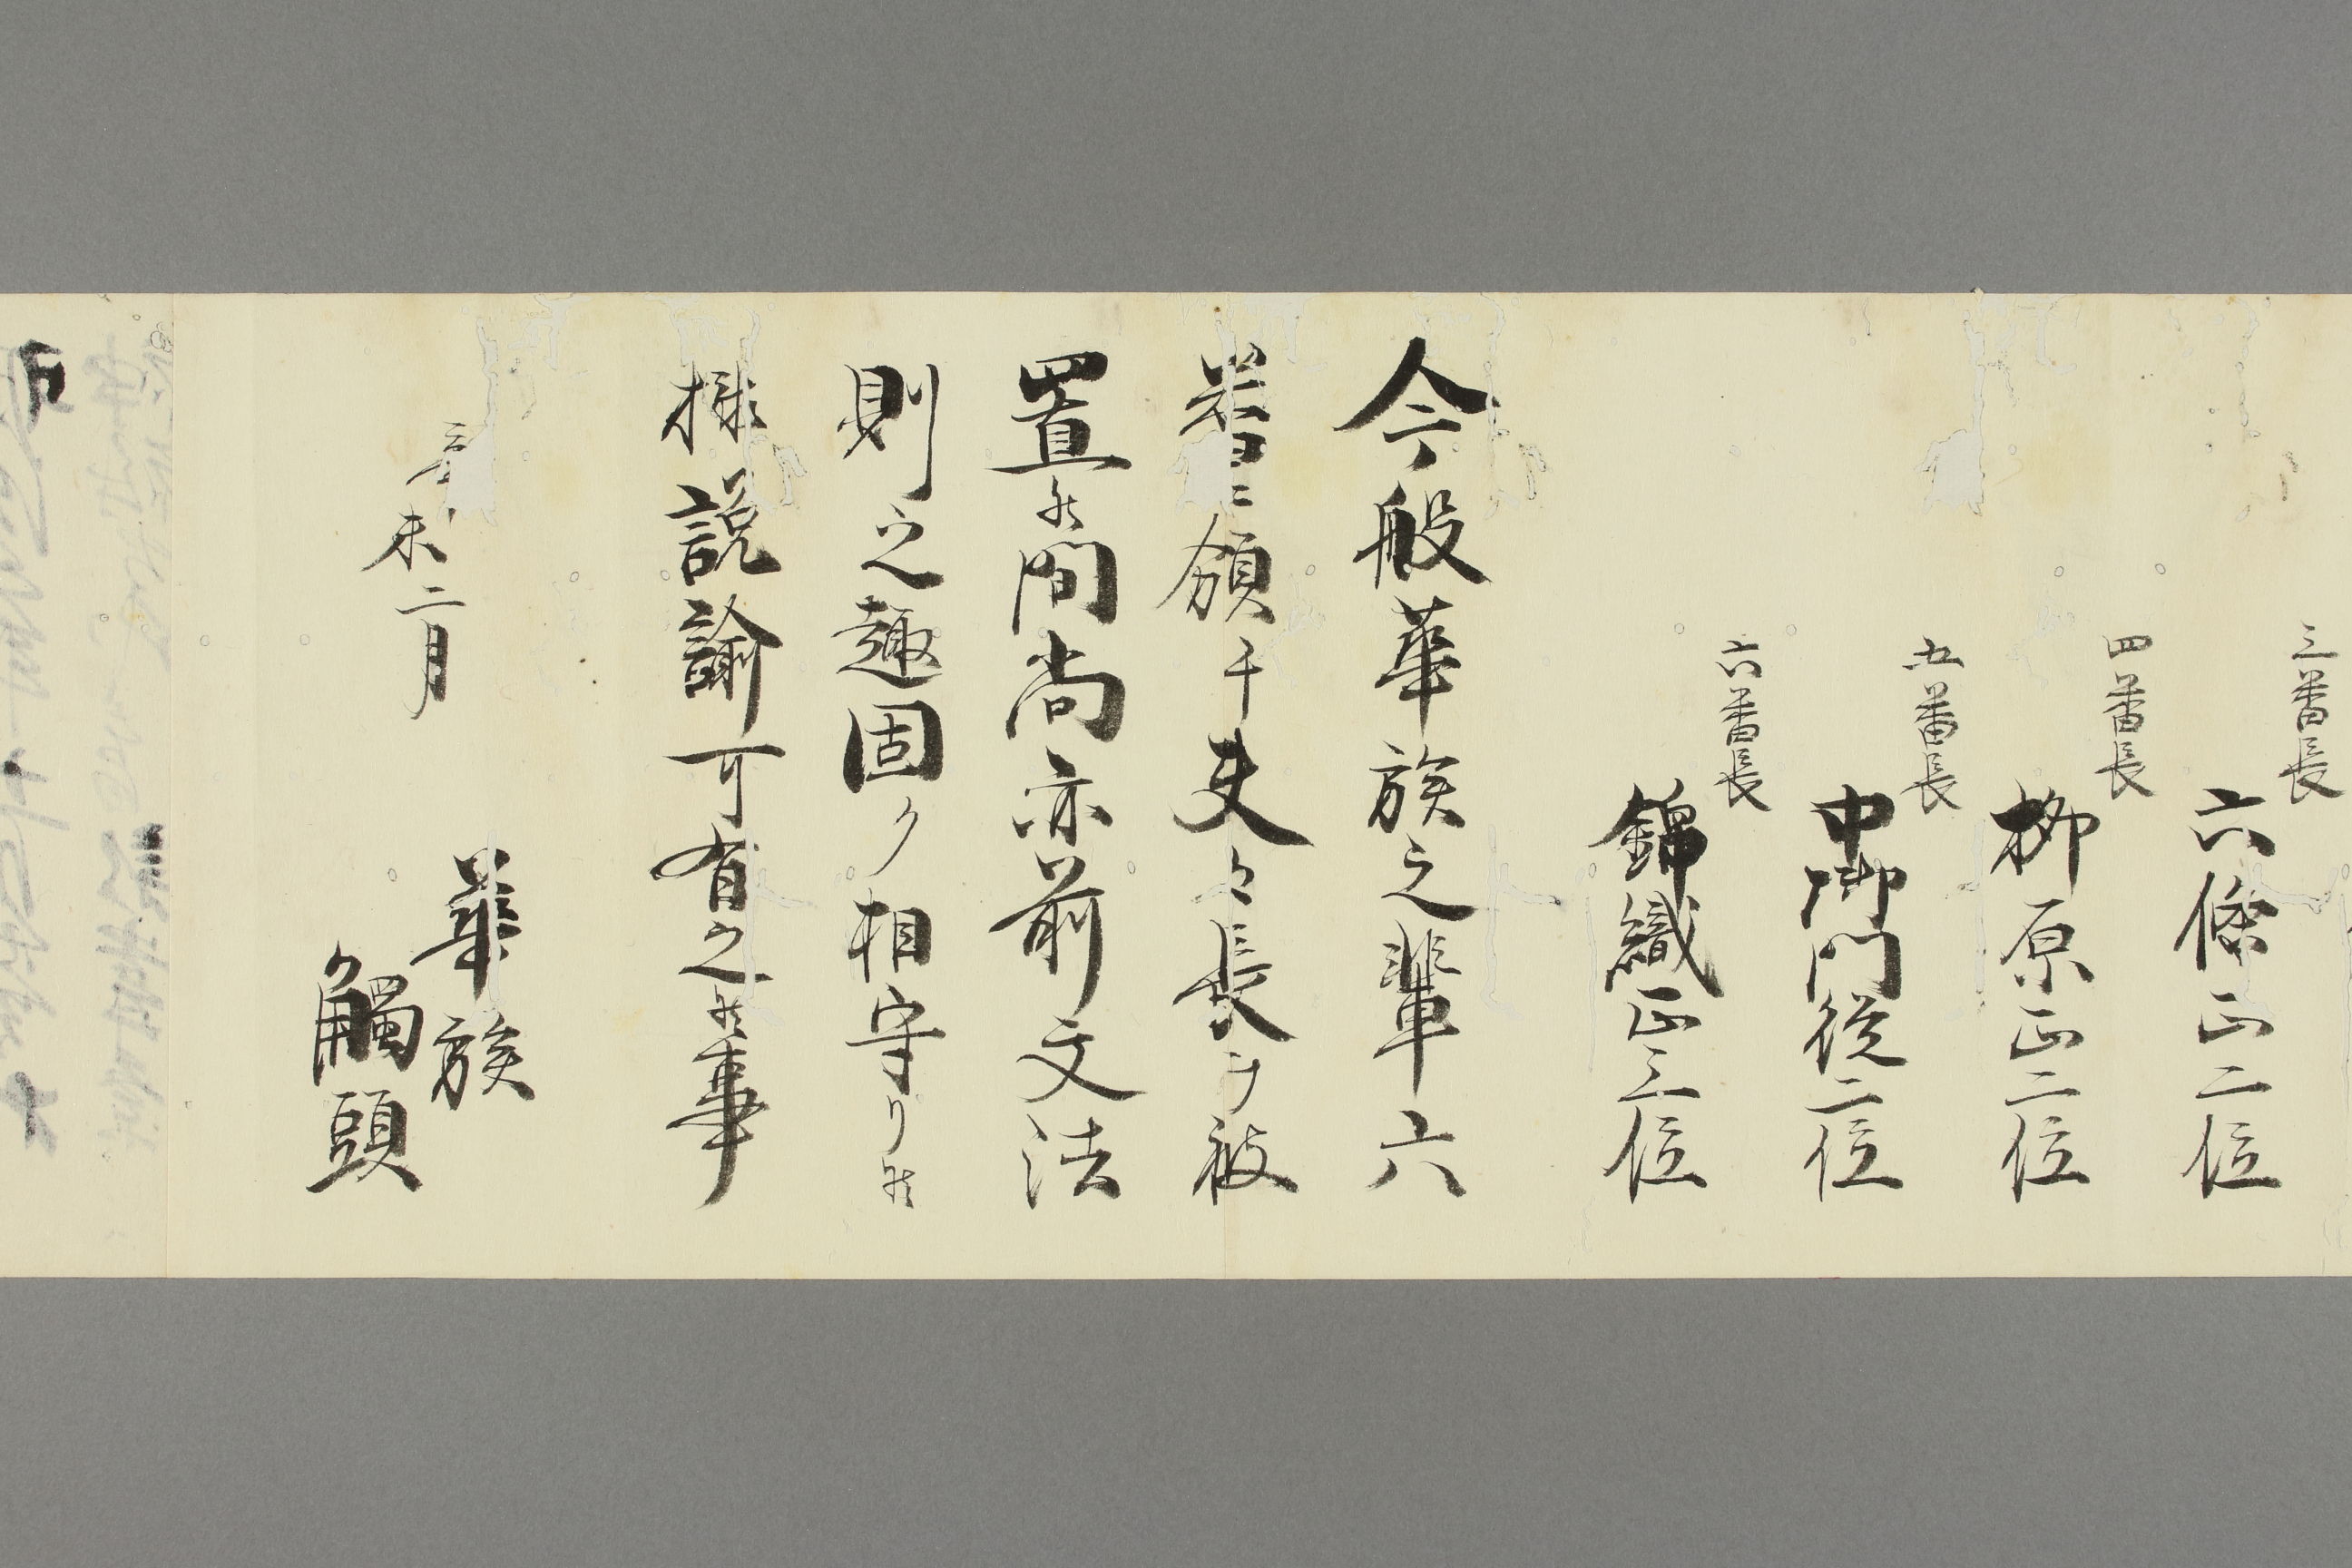 三番長
六條正二位
四番長
柳原正二位
五番長
中御門従二位
六番長
錦織正三位
今般華族之輩六
番ニ頒千夫々長ヲ被
置候間尚亦前文法
則之趣固ク相守リ候
様説諭可有之候事
辛未二月
華族
觸頭